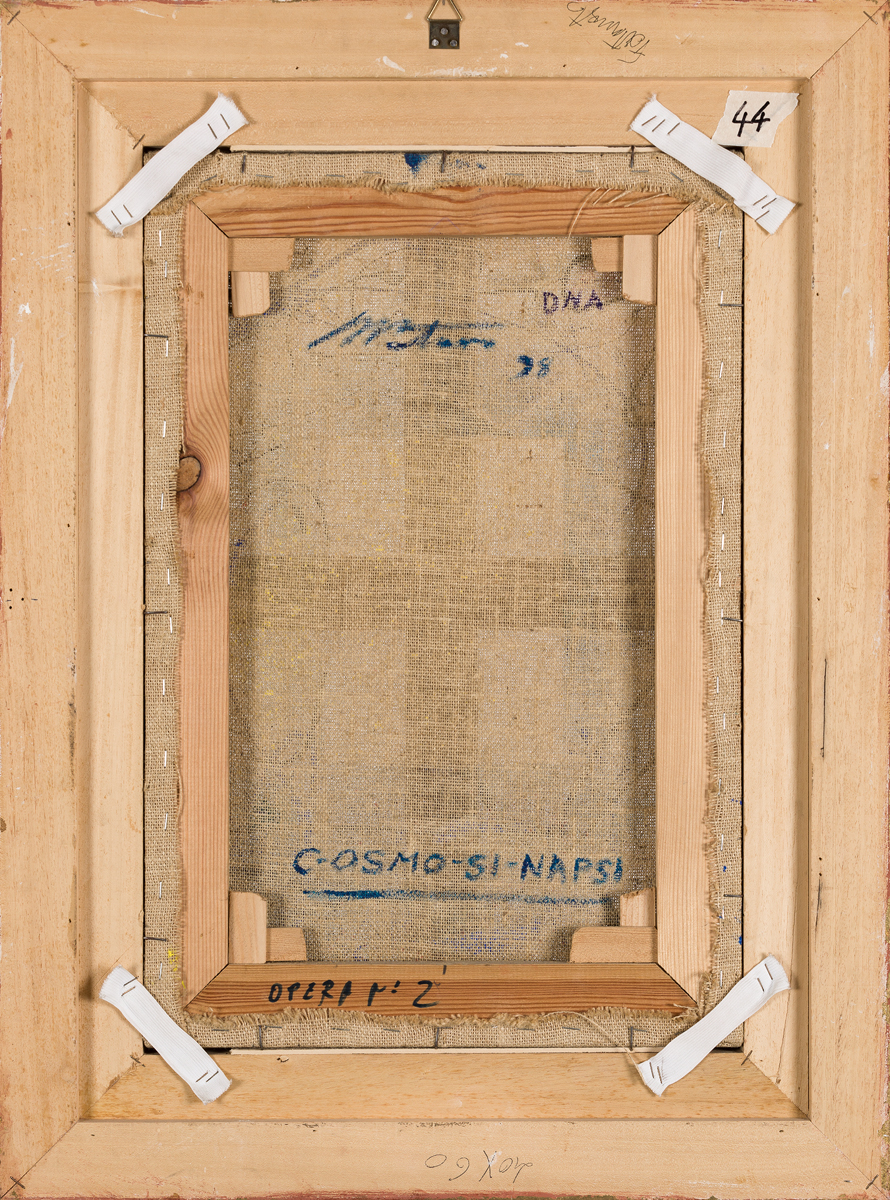 44
DNA
98
C-OSMO-SI-NAPSI
OPERA N: 2
40X60